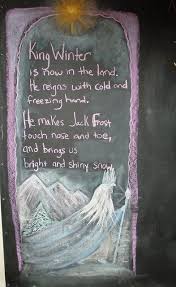 King Winter
is now in the land.
He reigns with cold and
freezing hand.
He makes Jack Frost
touch nose and toe,
and brings us
bright and shiny snow.